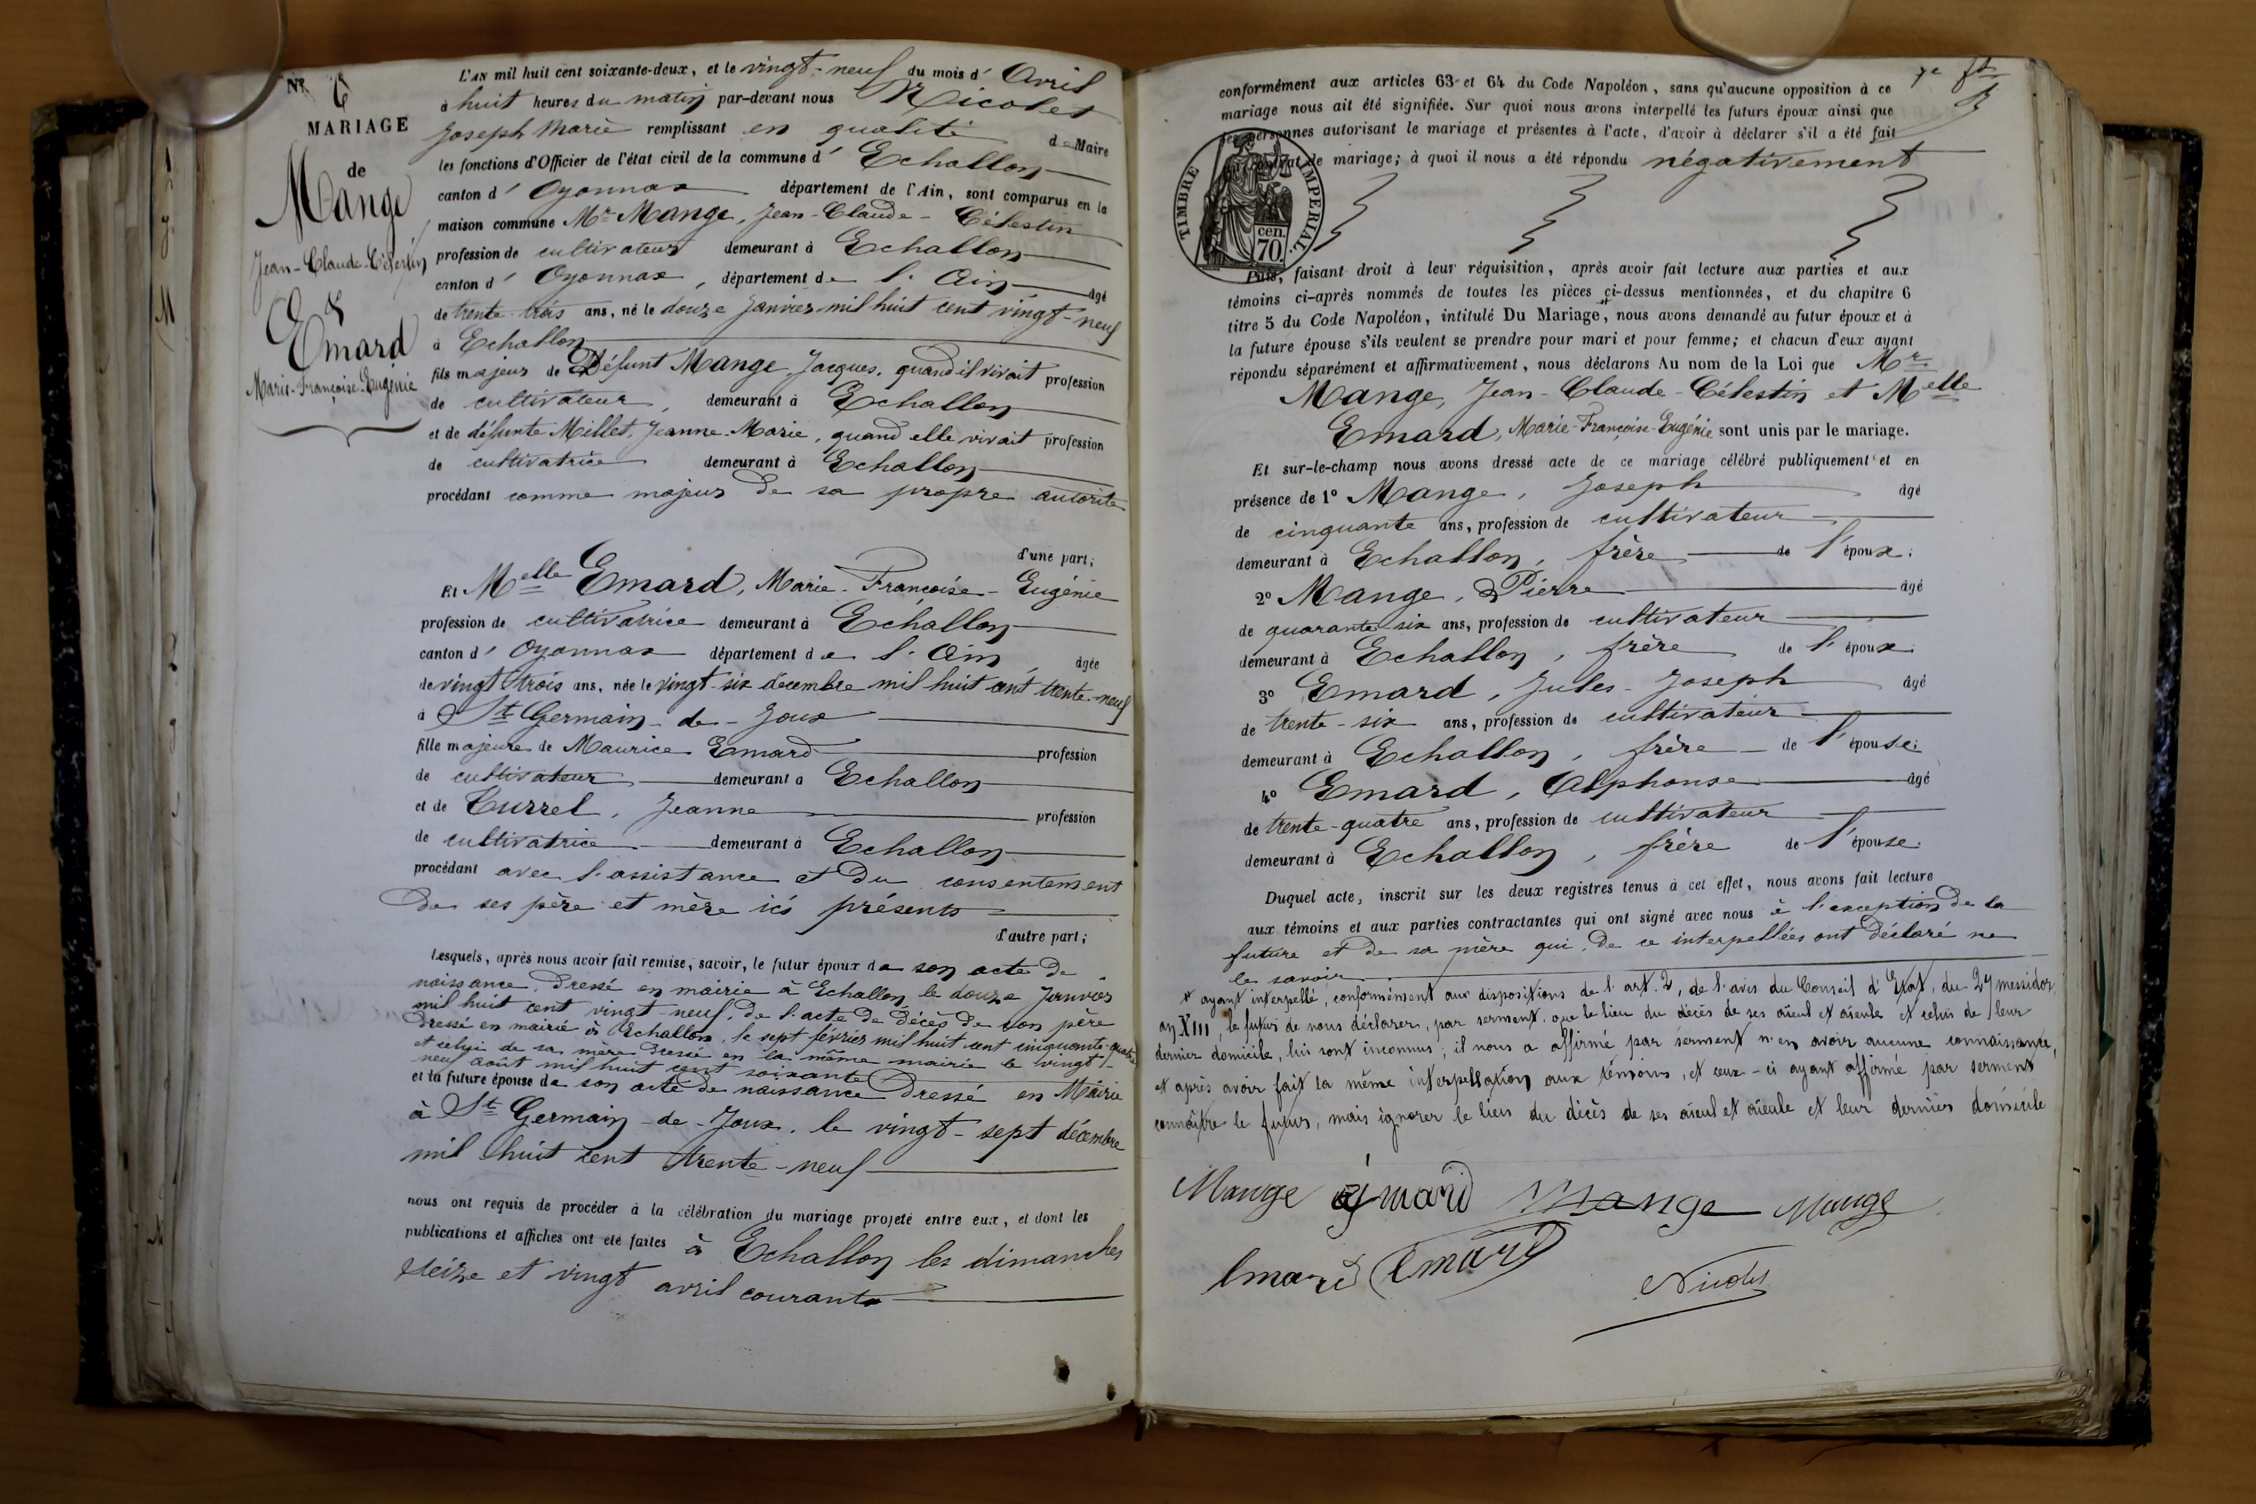 N° 6
MARIAGE
de
Mange
Jean-Claude-Célestin
&
Emard
Marie-Françoise-Eugénie
L'AN mil huit cent soixante-deux, et le vingt-neuf du mois d' Avril
à huit heures du matin par-devant nous Nicolet
Joseph Marie remplissant en qualité de Maire
les fonctions d'Officier de l'état civil de la commune d' Echallon
canton d' Oyonnax département de l'Ain, sont comparus en la
maison commune Mr Mange, Jean-Claude-Célestin
profession de cultivateur demeurant à Echallon
canton d' Oyonnax, département de l'Ain âgé
de trente-trois ans, né le douze Janvier mil huit cent vingt-neuf
à Echallon
fils majeur de Défunt Mange Jacques, quand il vivait profession
de cultivateur, demeurant à Echallon
et de défunte Millet, Jeanne-Marie, quand elle vivait profession
de cultivatrice demeurant à Echallon
procédant comme majeur de sa propre autorité
d'une part;
Et Melle Emard, Marie-Françoise-Eugénie
profession de cultivatrice demeurant à Echallon
canton d' Oyonnax département de l'Ain, âgée
de vingt trois ans, née le vingt-six décembre mil huit cent trente-neuf
à St Germain-de-Joux
fille majeure de Maurice Emard profession
de cultivateur demeurant à Echallon
et de Currel, Jeanne profession
de cultivatrice demeurant à Echallon
procédant avec l'assistance et du consentement
de ses père et mère ici présents
d'autre part;
Lesquels, après nous avoir fait remise, savoir, le futur époux de son acte de
naissance, dressé en mairie à Echallon le douze Janvier
mil huit cent vingt-neuf, de l'acte de décès de son père
dressé en mairie à Echallon, le sept février mil huit cent cinquante-quatre
et celui de sa mère dressé en la même mairie le vingt-
neuf août mil huit cent soixante
et la future épouse de son acte de naissance dressé en Mairie
à St Germain-de-Joux, le vingt-sept décembre
mil huit cent trente-neuf
nous ont requis de procéder à la célébration du mariage projeté entre eux, et dont les
publications et affiches ont été faites à Echallon les dimanches
treize et vingt avril courant
conformément aux articles 63 et 64 du Code Napoléon, sans qu'aucune opposition à ce
mariage nous ait été signifiée. Sur quoi nous avons interpellé les futurs époux ainsi que
personnes autorisant le mariage et présentes à l'acte, d'avoir à déclarer s'il a été fait
de mariage; à quoi il nous a été répondu négativement
TIMBRE IMPERIAL.
cen.
70.
Puis, faisant droit à leur réquisition, après avoir fait lecture aux parties et aux
témoins ci-après nommés de toutes les pièces ci-dessus mentionnées, et du chapitre 6
titre 5 du Code Napoléon, intitulé Du Mariage, nous avons demandé au futur époux et à
la future épouse s'ils veulent se prendre pour mari et pour femme; et chacun d'eux ayant
répondu séparément et affirmativement, nous déclarons Au nom de la Loi que Mr
Mange, Jean-Claude-Célestin et Melle
Emard, Marie-Françoise-Eugénie sont unis par le mariage.
Et sur-le-champ nous avons dressé acte de ce mariage célébré publiquement et en
présence de 1° Mange, Joseph âgé
de cinquante ans, profession de cultivateur
demeurant à Echallon, frère de l'époux;
2° Mange, Pierre âgé
de quarante-six ans, profession de cultivateur
demeurant à Echallon, frère de l'époux;
3° Emard, Jules-Joseph âgé
de trente-six ans, profession de cultivateur
demeurant à Echallon, frère de l'épouse;
4° Emard, Alphonse âgé
de trente-quatre ans, profession de cultivateur
demeurant à Echallon, frère de l'épouse.
Duquel acte, inscrit sur les deux registres tenus à cet effet, nous avons fait lecture
aux témoins et aux parties contractantes qui ont signé avec nous à l'exception de la
future et de sa mère qui, de ce interpellées ont déclaré ne
le savoir
ayant interpellé, conformément aux dispositions de l'art. 2, de l'avis du Conseil d'Etat, du 27 messidor
an XIII, le futur de nous déclarer, par serment, que le lieu du décès de ses aïeul et aïeule et celui de leur
dernier domicile, lui sont inconnus; il nous a affirmé par serment n'en avoir aucune connaissance,
et après avoir fait la même interpellation aux témoins, et ceux-ci ayant affirmé par serment
connaître le futur, mais ignorer le lieu du décès de ses aïeul et aïeule et leur dernier domicile
Mange Emard Mange Mange
Emard Emard
Nicolet